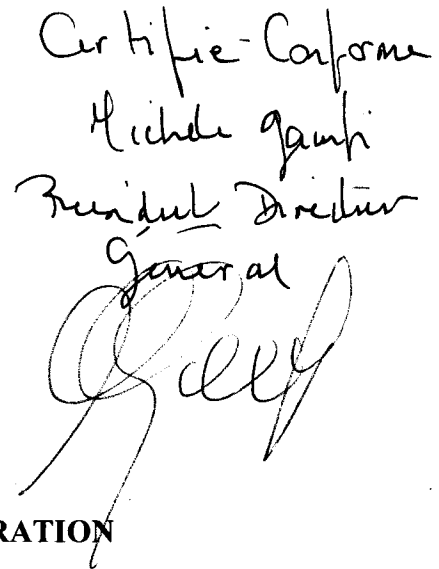 Certifié-Conforme
Michele
President Directeur
Général
RATION